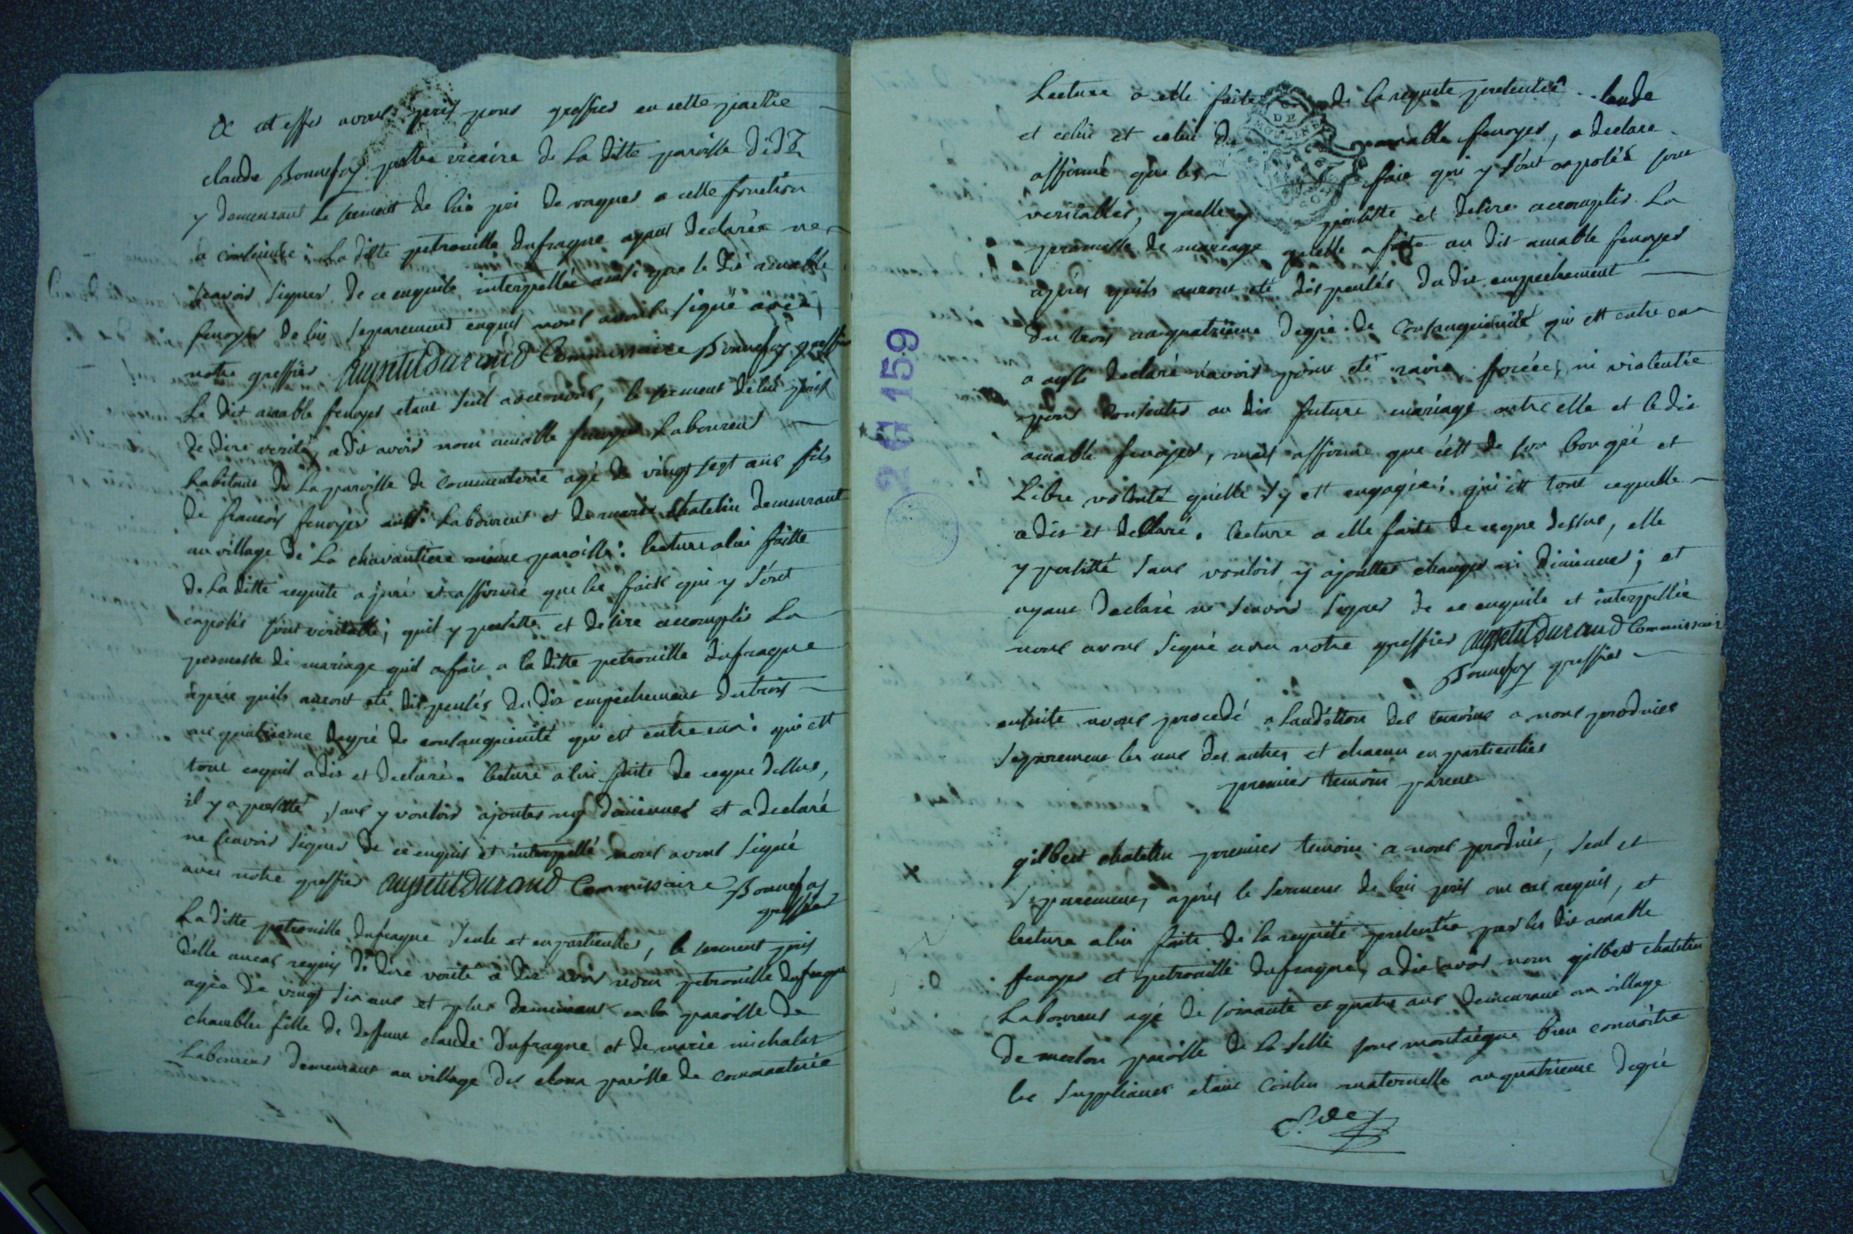 a cet effet avons pris pour greffier en cette partie
claude Bonnefoy prettre vicaire de La ditte paroisse
y demeurant Le serment de luis pri de vaquer a cette fonction
La ditte petronille dufragne ayant declarée ne
scavoir signer de ce enquile interpellée ainsi que le dit amable
fenoyer de luis separement enquis nous avons signé avec
notre greffier aupetitdurand Commissaire Bonnefoy greffier
Le dit amable fenoyer etant seul avec nous, le serment de luis pris
de dire verité, a dit avoir nom amable fenoyer Laboureur
habitant de La paroisse de commenterie agé de vingt sept ans fils
de francois fenoyer aussi Laboureur et de marie chatelin demeurant
au village de La chavantiere meme paroisse: lecture a lui faitte
de La ditte requete a juré et affirmé que les faits qui y sont
exposés sont veritable; quil y persiste et desire accomplir La
promesse de mariage quil a fait a la ditte petronille dufragne
apres quils auront eté dispensés du dit empechement du trois
au quatrieme degré de consanguinité qui est entre eux: qui est
tout cequil a dit et declaré. lecture a lui faite de ceque dessus,
il y a persisté, sans y vouloir ajouter ny diminuer et a declaré
ne scavoir signer de ce enquis et interpellé nous avons signé
avec notre greffier aupetitdurand Commissaire Bonnefoy
greffier
La ditte petronille dufragne seule et en particulier, le serment pris
delle au cas requis de dire verité a dit avoir nom petronille dufragne
agée de vingt six ans et plus demeurant en la paroisse de
chamblet fille de deffunt claude dufragne et de marie michalat
Laboureur demeurant au village des paroisse de commenterie
2 G 159
Lecture a elle faite de la requete presentée
et celui et celui du amable fenoyer, a declaré
affirmé que les fait qui y sont exposés sont
veritables, quelle y persiste et desire accomplir La
promesse de mariage quelle a faite au dit amable fenoyer
apres quils auront eté dispensés du dit empechement
du trois au quatrieme degré de Consanguinité qui est entre eux
a aussi declaré n'avoir point eté ravie, forcée, ni violentée
pour consentir au dit future mariage entre elle et le dit
amable fenoyer, mais affirme que c'est de son bon gré et
Libre volonté quelle s'y est engagée; qui est tout cequelle
a dit et declaré. lecture a elle faite de ceque dessus, elle
y persisté sans vouloir y ajoutter changer ni diminuer; et
ayant declaré ne scavoir signer de ce enquile et interpellée
nous avons signé avec notre greffier aupetitdurand Commissaire
Bonnefoy greffier
ensuite avons procedé a Laudition des temoins a nous produits
separement les uns des autres et chacun en particulier
premier temoin parent
gilbert chatelin premier temoin a nous produit, seul et
separement, apres le serment de lui pris au cas requis, et
lecture a lui faite de la requete presentée par les dit amable
fenoyer et petronille dufragne, a dit avoir nom gilbert chatelin
Laboureur agé de soixante et quatre ans demeurant au village
de merlon paroisse de La Celle sous montaigne bien connoitre
les suppliants etant Cousin maternelle au quatrieme degré